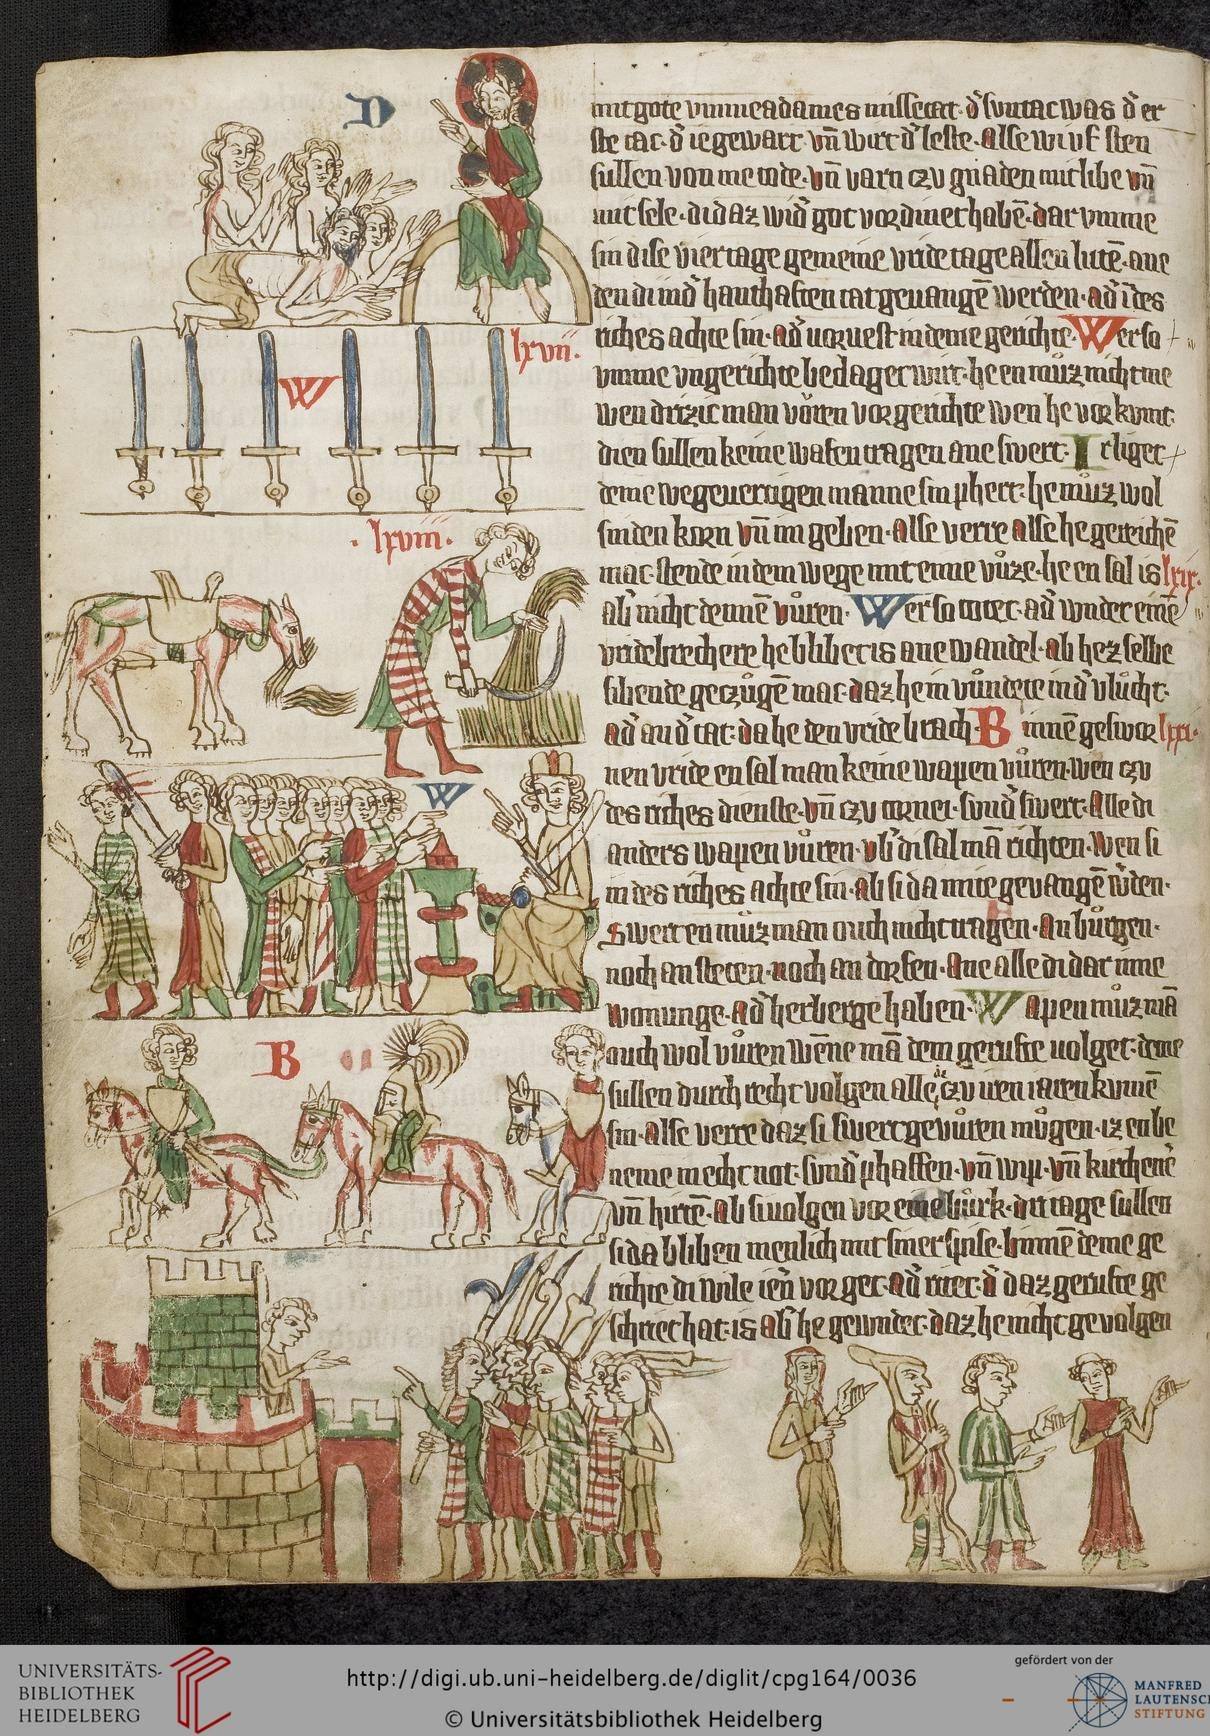 D
mit gote vmme adames missetat. d̕ suntac was d̕ er
ste tac. d̕ ie gewart. vn̄ wirt d̕ leste. Alse wi vf sten
sullen von me tode. vn̄ varn czu gnaden mit libe vn̄
mit sele. di daz wid̕ got vordinet habē. dar vmme
sin dise vier tage gemeine vride tage allen lutē. ane
den di in d̕ hanthaften tat gevangē werden. ad̕ i des
riches achte sin. ad̕ uorvest in deme gerichte. Wer so
lxvii.
W
vmme vngerichte bedaget wirt. he en můz nicht me
wen drizic man vůren vor gerichte wen he vor kvmt.
dien sullen keine wafen tragen ane swert. Irliget
deme wegeuertigen manne sin phert. he můz wol
. lxviii.
sniden korn vn̄ im geben. alse verre alse he gereichē
mac. stende in dem wege mit eime vůze. he en sal is lxix.
ab̕ nicht dennē vůren. Wer so totet. ad̕ wndet einē
vridebrechere he blibet is ane wandel. ab hez selbe
sibende gezůgē mac. daz he in vůndete in d̕ vlůcht.
ad̕ an d̕ tat. da he den vride brach. Binnē geswor lxxi.
nen vride en sal man keine wapen vůren. wen czu
des riches dienste. vn̄ czu tornei. sund̕ swert. Alle di
W
anders wapen vůren. vb̕ di sal mā richten. Wen si
in des riches achte sin. ab si da mite gevangē w̕den.
Swert en můz man ouch nicht tragen. An bůrgen.
noch an steten. noch an dorfen. Ane alle di dar inne
wonunge. ad̕ herberge haben. Wapen můz mā
B
ouch wol vůren wēne mā dem gerufte uolget. deme
sullen durch recht volgen alle di czu iren iaren kvmē
sin. Alse verre daz si swert gevůren můgen. iz en be
neme in echt not. sund̕ phaffen. vn̄ wip. vn̄ kirchenē
vn̄ hirtē. Ab si uolgen vor eine bůrk. dri tage sullen
si da bliben menlich mit siner spise. binnē deme ge
richte di wile ien̄ vor get. ad̕ ritet. d̕ daz gerufte ge
schriet hat. is ab̕ he gewndet. daz he nicht gevolgen
UNIVERSITÄTS-
BIBLIOTHEK
HEIDELBERG
http://digi.ub.uni-heidelberg.de/diglit/cpg164/0036
© Universitätsbibliothek Heidelberg
gefördert von der
MANFRED
LAUTENSC
STIFTUNG